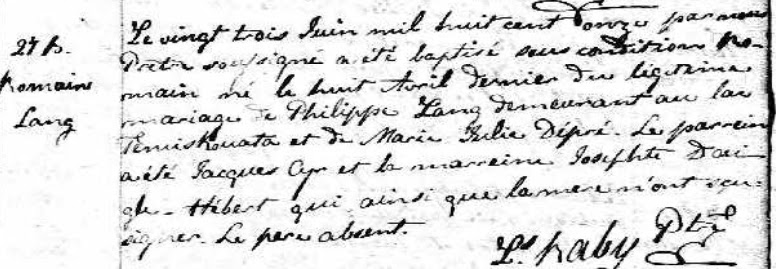 27 B.
Romain
Lang
Le vingt trois Juin mil huit cent onze par nous
Prêtre soussigné a été baptisé sous condition Ro-
main né le huit Avril dernier du légitime
mariage de Philippe Lang demeurant au lac
Temiskouata et de Marie Julie Dépré. Le parrein
a été Jacques Cyr et la marreine Josephte Dai-
gle - Hébert qui ainsi que la mere n'ont scu
signer. Le pere absent.
Ls Raby Ptre